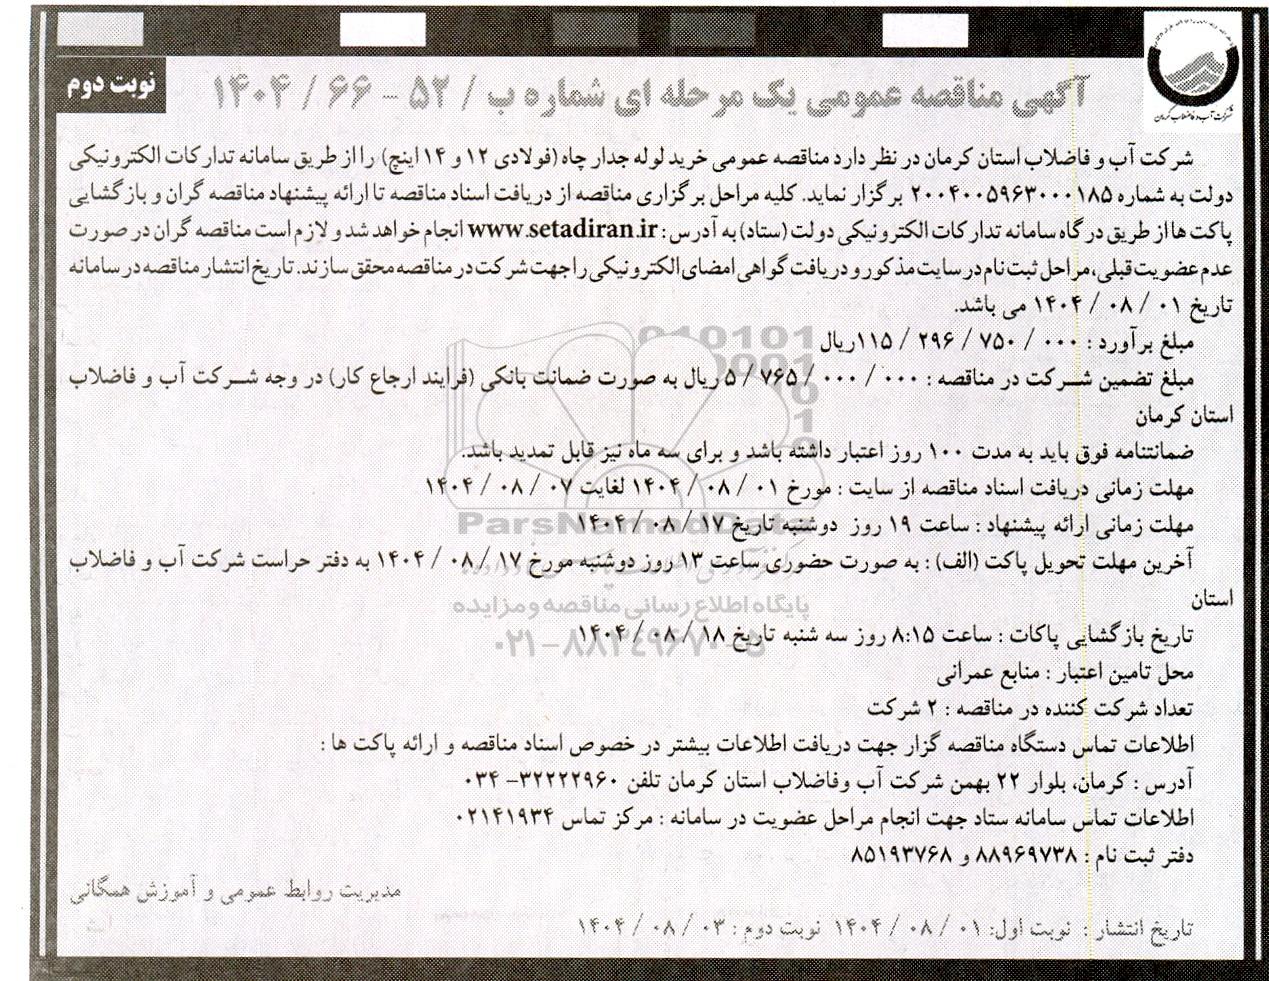 شرکت آب و فاضلاب کرمان
نوبت دوم
آگهی مناقصه عمومی یک مرحله ای شماره ب / ۵۲ - ۶۶ / ۱۴۰۴
شرکت آب و فاضلاب استان کرمان در نظر دارد مناقصه عمومی خرید لوله جدار چاه (فولادی ۱۲ و ۱۴ اینچ) را از طریق سامانه تدارکات الکترونیکی
دولت به شماره ۲۰۰۴۰۰۵۹۶۳۰۰۰۱۸۵ برگزار نماید. کلیه مراحل برگزاری مناقصه از دریافت اسناد مناقصه تا ارائه پیشنهاد مناقصه گران و بازگشایی
پاکت ها از طریق درگاه سامانه تدارکات الکترونیکی دولت (ستاد) به آدرس : www.setadiran.ir انجام خواهد شد و لازم است مناقصه گران در صورت
عدم عضویت قبلی، مراحل ثبت نام در سایت مذکور و دریافت گواهی امضای الکترونیکی را جهت شرکت در مناقصه محقق سازند. تاریخ انتشار مناقصه در سامانه
تاریخ ۰۱ / ۰۸ / ۱۴۰۴ می باشد.
مبلغ برآورد : ۰۰۰ / ۷۵۰ / ۲۹۶ / ۱۱۵ریال
مبلغ تضمین شرکت در مناقصه : ۰۰۰ / ۰۰۰ / ۷۶۵ / ۵ ریال به صورت ضمانت بانکی (فرایند ارجاع کار) در وجه شرکت آب و فاضلاب
استان کرمان
ضمانتنامه فوق باید به مدت ۱۰۰ روز اعتبار داشته باشد و برای سه ماه نیز قابل تمدید باشد.
مهلت زمانی دریافت اسناد مناقصه از سایت : مورخ ۰۱ / ۰۸ / ۱۴۰۴ لغایت ۰۷ / ۰۸ / ۱۴۰۴
ParsNamadData
مهلت زمانی ارائه پیشنهاد : ساعت ۱۹ روز دوشنبه تاریخ ۱۷ / ۰۸ / ۱۴۰۴
آخرین مهلت تحویل پاکت (الف) : به صورت حضوری ساعت ۱۳ روز دوشنبه مورخ ۱۷ / ۰۸ / ۱۴۰۴ به دفتر حراست شرکت آب و فاضلاب
استان
پایگاه اطلاع رسانی مناقصه و مزایده
تاریخ بازگشایی پاکات : ساعت ۸:۱۵ روز سه شنبه تاریخ ۱۸ / ۰۸ / ۱۴۰۴
۰۲۱-۸۸۳۴۹۶۷۰-۵
محل تامین اعتبار : منابع عمرانی
تعداد شرکت کننده در مناقصه : ۲ شرکت
اطلاعات تماس دستگاه مناقصه گزار جهت دریافت اطلاعات بیشتر در خصوص اسناد مناقصه و ارائه پاکت ها :
آدرس : کرمان، بلوار ۲۲ بهمن شرکت آب وفاضلاب استان کرمان تلفن ۳۲۲۲۲۹۶۰- ۰۳۴
اطلاعات تماس سامانه ستاد جهت انجام مراحل عضویت در سامانه : مرکز تماس ۰۲۱۴۱۹۳۴
دفتر ثبت نام : ۸۸۹۶۹۷۳۸ و ۸۵۱۹۳۷۶۸
مدیریت روابط عمومی و آموزش همگانی
تاریخ انتشار : نوبت اول: ۰۱ / ۰۸ / ۱۴۰۴ نوبت دوم : ۰۳ / ۰۸ / ۱۴۰۴